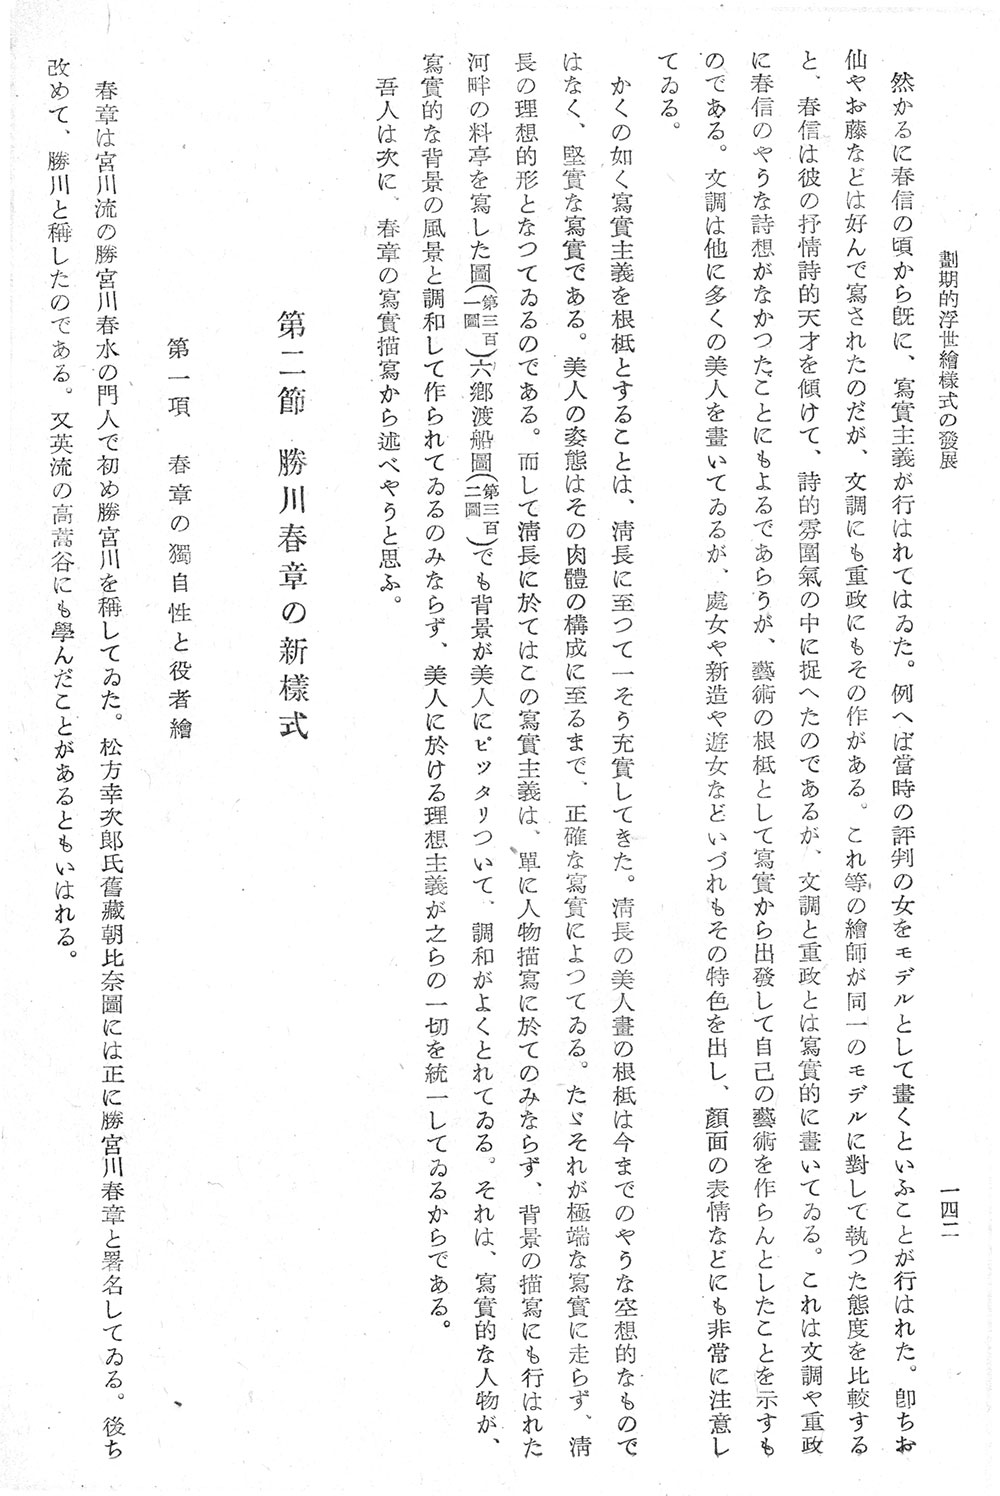 劃期的浮世繪樣式の發展
一四二
然かるに春信の頃から旣に、寫實主義が行はれてはゐた。例へば當時の評判の女をモデルとして畫くといふことが行はれた。卽ちお
仙やお藤などは好んで寫されたのだが、文調にも重政にもその作がある。これ等の繪師が同一のモデルに對して執つた態度を比較する
と、春信は彼の抒情詩的天才を傾けて、詩的雰圍氣の中に捉へたのであるが、文調と重政とは寫實的に畫いてゐる。これは文調や重政
に春信のやうな詩想がなかつたことにもよるであらうが、藝術の根柢として寫實から出發して自己の藝術を作らんとしたことを示すも
のである。文調は他に多くの美人を畫いてゐるが、處女や新造や遊女などいづれもその特色を出し、顏面の表情などにも非常に注意し
てゐる。
かくの如く寫實主義を根柢とすることは、淸長に至つて一そう充實してきた。淸長の美人畫の根柢は今までのやうな空想的なもので
はなく、堅實な寫實である。美人の姿態はその肉體の構成に至るまで、正確な寫實によつてゐる。たゞそれが極端な寫實に走らず、淸
長の理想的形となつてゐるのである。而して淸長に於てはこの寫實主義は、單に人物描寫に於てのみならず、背景の描寫にも行はれた
河畔の料亭を寫した圖(第三百一圖)六鄕渡船圖(第三百二圖)でも背景が美人にピツタリついて、調和がよくとれてゐる。それは、寫實的な人物が、
寫實的な背景の風景と調和して作られてゐるのみならず、美人に於ける理想主義が之らの一切を統一してゐるからである。
吾人は次に、春章の寫實描寫から述べやうと思ふ。
第二節 勝川春章の新樣式
第一項 春章の獨自性と役者繪
春章は宮川流の勝宮川春水の門人で初め勝宮川を稱してゐた。松方幸次郎氏舊藏朝比奈圖には正に勝宮川春章と署名してゐる。後ち
改めて、勝川と稱したのである。又英流の高嵩谷にも學んだことがあるともいはれる。